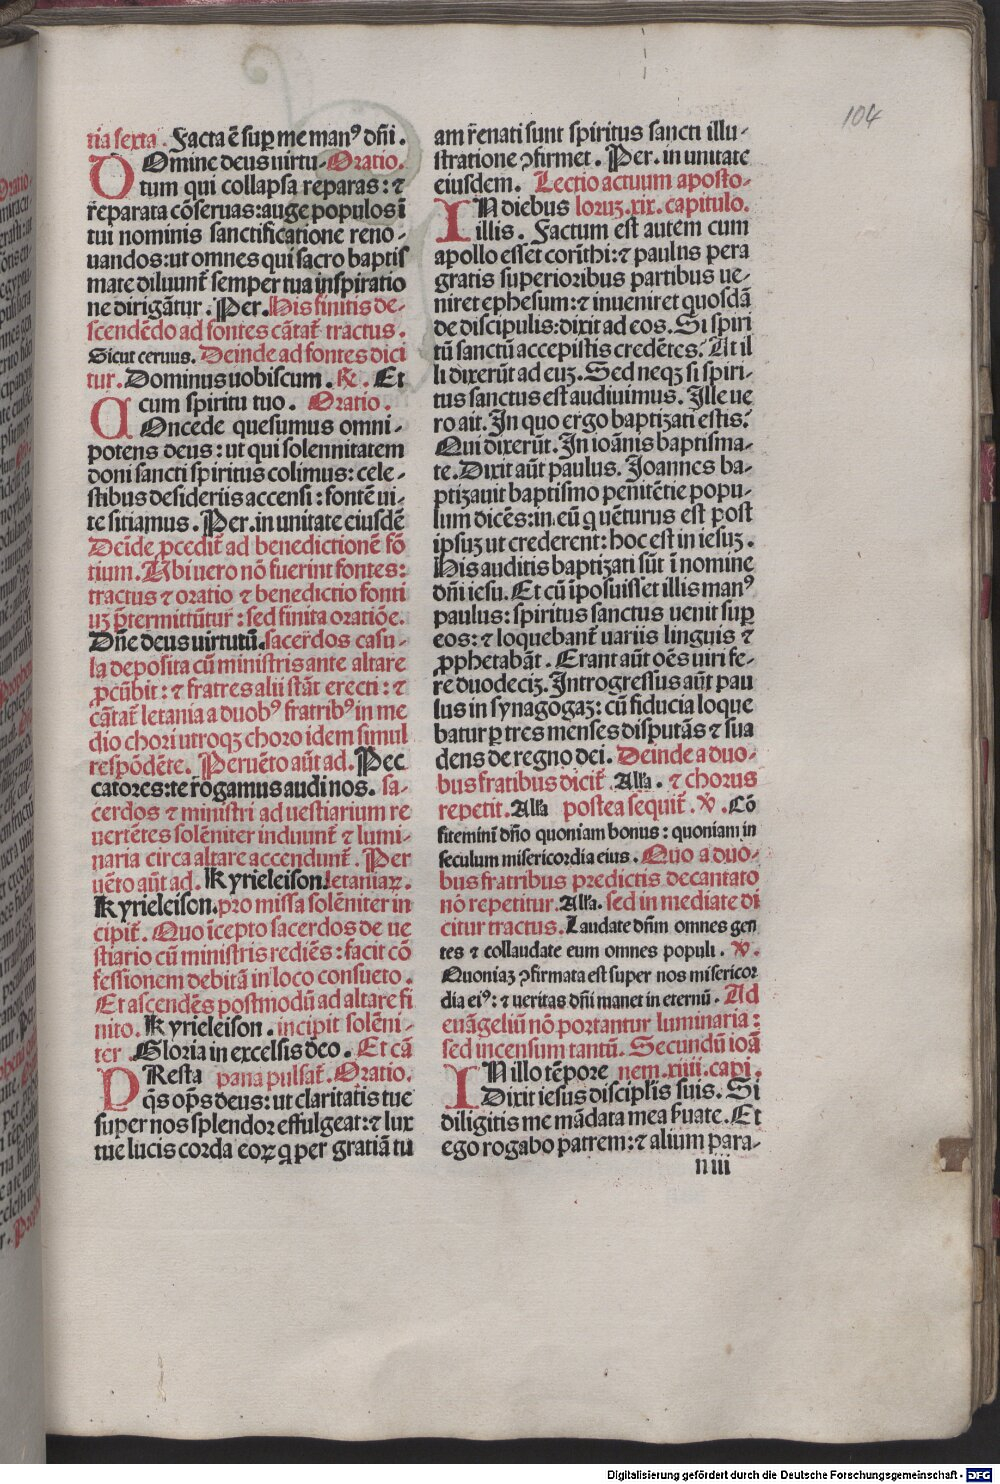 104
ria sexta . Facta ē sup̱ me manꝰ dñi .
DOmine deus uirtu- Oratio.
tum qui collapsa reparas: ⁊
reparata cōseruas: auge populos ī
tui nominis sanctificatione reno-
uandos: ut omnes qui sacro baptis
mate diluunt̄ semper tua inspiratio
ne dirigātur . Per. His finitis de-
scendēdo ad fontes cātat̄ tractus .
Sicut ceruus. Deinde ad fontes dici
tur. Dominus uobiscum . ℟. Et
cum spiritu tuo . Oratio .
COncede quesumus omni-
potens deus : ut qui solennitatem
doni sancti spiritus colimus: cele-
stibus desideriis accensi : fontē ui-
te sitiamus . Per. in unitate eiusdē
Deīde ꝓcedit̄ ad benedictionē fō
tium. Ubi uero nō fuerint fontes:
tractus ⁊ oratio ⁊ benedictio fonti
uꝫ p̄termittūtur : sed finita oratiōe.
Dñe deus uirtutū. sacerdos casu-
la deposita cū ministris ante altare
ꝓcūbit : ⁊ fratres alii stāt erecti : ⁊
cātat̄ letania a duobꝰ fratribꝰ in me
dio chori utroqꝫ choro idem simul
respōdēte. Peruēto aūt ad. Pec
catores: te rogamus audi nos. sa-
cerdos ⁊ ministri ad uestiarium re
uertētes solēniter induunt̄ ⁊ lumi-
naria circa altare accendunt̄ . Per
uēto aūt ad. Kyrieleison. letaniaꝝ.
Kyrieleison. pro missa solēniter in
cipit̄. Quo īcepto sacerdos de ue
stiario cū ministris rediēs : facit cō
fessionem debitā in loco consueto .
Et ascendēs postmodū ad altare fi
nito. Kyrieleison . incipit solēni-
ter . Gloria in excelsis deo . Et cā
PResta pana pulsat̄. Oratio.
q̄s op̄s deus: ut claritatis tue
super nos splendor effulgeat: ⁊ lux
tue lucis corda eoꝝ q per gratiā tu
am renati sunt spiritus sancti illu-
stratione ꝯfirmet . Per. in unitate
eiusdem . Lectio actuum aposto-
IN diebus loruꝫ. xix. capitulo.
illis . Factum est autem cum
apollo esset corīthi: ⁊ paulus pera
gratis superioribus partibus ue-
niret ephesum: ⁊ inueniret quosdā
de discipulis: dixit ad eos. Si spiri
tū sanctū accepistis credētes? At il
li dixerūt ad euꝫ. Sed neqꝫ si spiri-
tus sanctus est audiuimus. Ille ue
ro ait. In quo ergo baptizati estis?
Qui dixerūt. In ioānis baptisma-
te. Dixit aūt paulus. Joannes ba-
ptizauit baptismo penitētie popu-
lum dicēs: in eū q uēturus est post
ipsuꝫ ut crederent: hoc est in iesuꝫ .
His auditis baptizati sūt ī nomine
dñi iesu. Et cū īposuisset illis manꝰ
paulus: spiritus sanctus uenit sup̱
eos: ⁊ loquebant̄ uariis linguis ⁊
ꝓphetabāt . Erant aūt oēs uiri fe-
re duodeciꝫ. Introgressus aūt pau
lus in synagogaꝫ: cū fiducia loque
batur ꝑ tres menses disputās ⁊ sua
dens de regno dei . Deinde a duo-
bus fratibus dicit̄ Alľa . ⁊ chorus
repetit. Alľa postea sequit̄. ℣ . Cō
fitemini dño quoniam bonus : quoniam in
seculum misericordia eius . Quo a duo-
bus fratribus predictis decantato
nō repetitur. Alľa. sed in mediate di
citur tractus. Laudate dñm omnes gen
tes ⁊ collaudate eum omnes populi . ℣.
Quoniaꝫ ꝯfirmata est super nos misericor
dia eiꝰ: ⁊ ueritas dñi manet in eternū . Ad
euāgeliū nō portantur luminaria :
sed incensum tantū. Secundū ioā
IN illo tēpore nem. xiiii. capi .
Dixit iesus discipľis suis. Si
diligitis me mādata mea ẜuate. Et
ego rogabo patrem: ⁊ alium para-
n iii
Digitalisierung gefördert durch die Deutsche Forschungsgemeinschaft - DFG